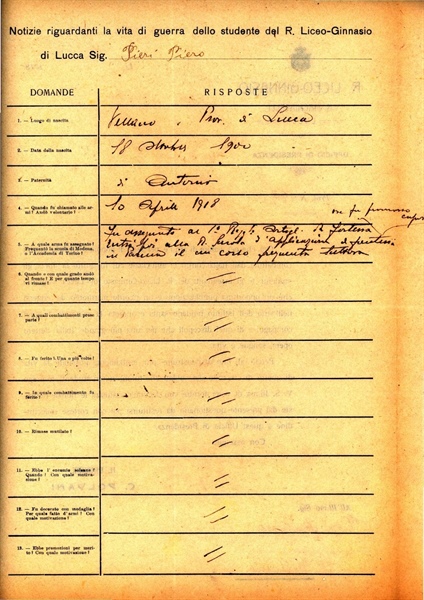 Notizie riguardanti la vita di guerra dello studente del R. Liceo-Ginnasio
di Lucca Sig. Pieri Piero
DOMANDE
RISPOSTE
1. — Luogo di nascita
Vellano Prov. di Lucca
2. — Data della nascita
18 Ottobre 1900
3. — Paternità
di Antonio
4. — Quando fu chiamato alle armi? Andò volontario?
10 Aprile 1918
5. — A quale arma fu assegnato?
Frequentò la scuola di Modena
o l'Accademia di Torino?
ove fu promosso
Fu assegnato al 1° Regg.to Artigl. da Fortezza
alla R. Scuola d'applicazione di
il cui corso frequenta tuttora
6. — Quando e con quale grado andò
al fronte? E per quanto tempo
vi rimase?
7. — A quali combattimenti prese
parte?
8. — Fu ferito? Una o più volte?
9. — In quale combattimento fu
ferito?
10. — Rimase mutilato?
11. — Ebbe l'encomio solenne?
Quando? Con quale motivazione?
12. — Fu decorato con medaglia?
Per quale fatto d'arme? Con
quale motivazione?
13. — Ebbe promozioni per merito?
Con quale motivazione?